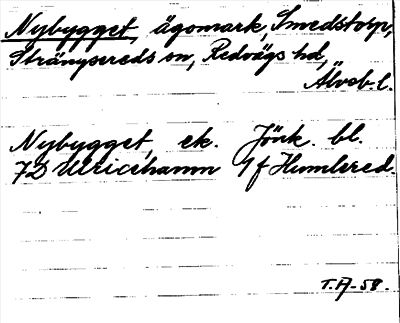 Nybygget, ägomark, Smedstorp,
Strängsereds sn, Redvägs hd,
Älvsb. l.
Nybygget, ek. Jönk. bl.
7D Ulricehamn 9f Humlered.
T.A-58.